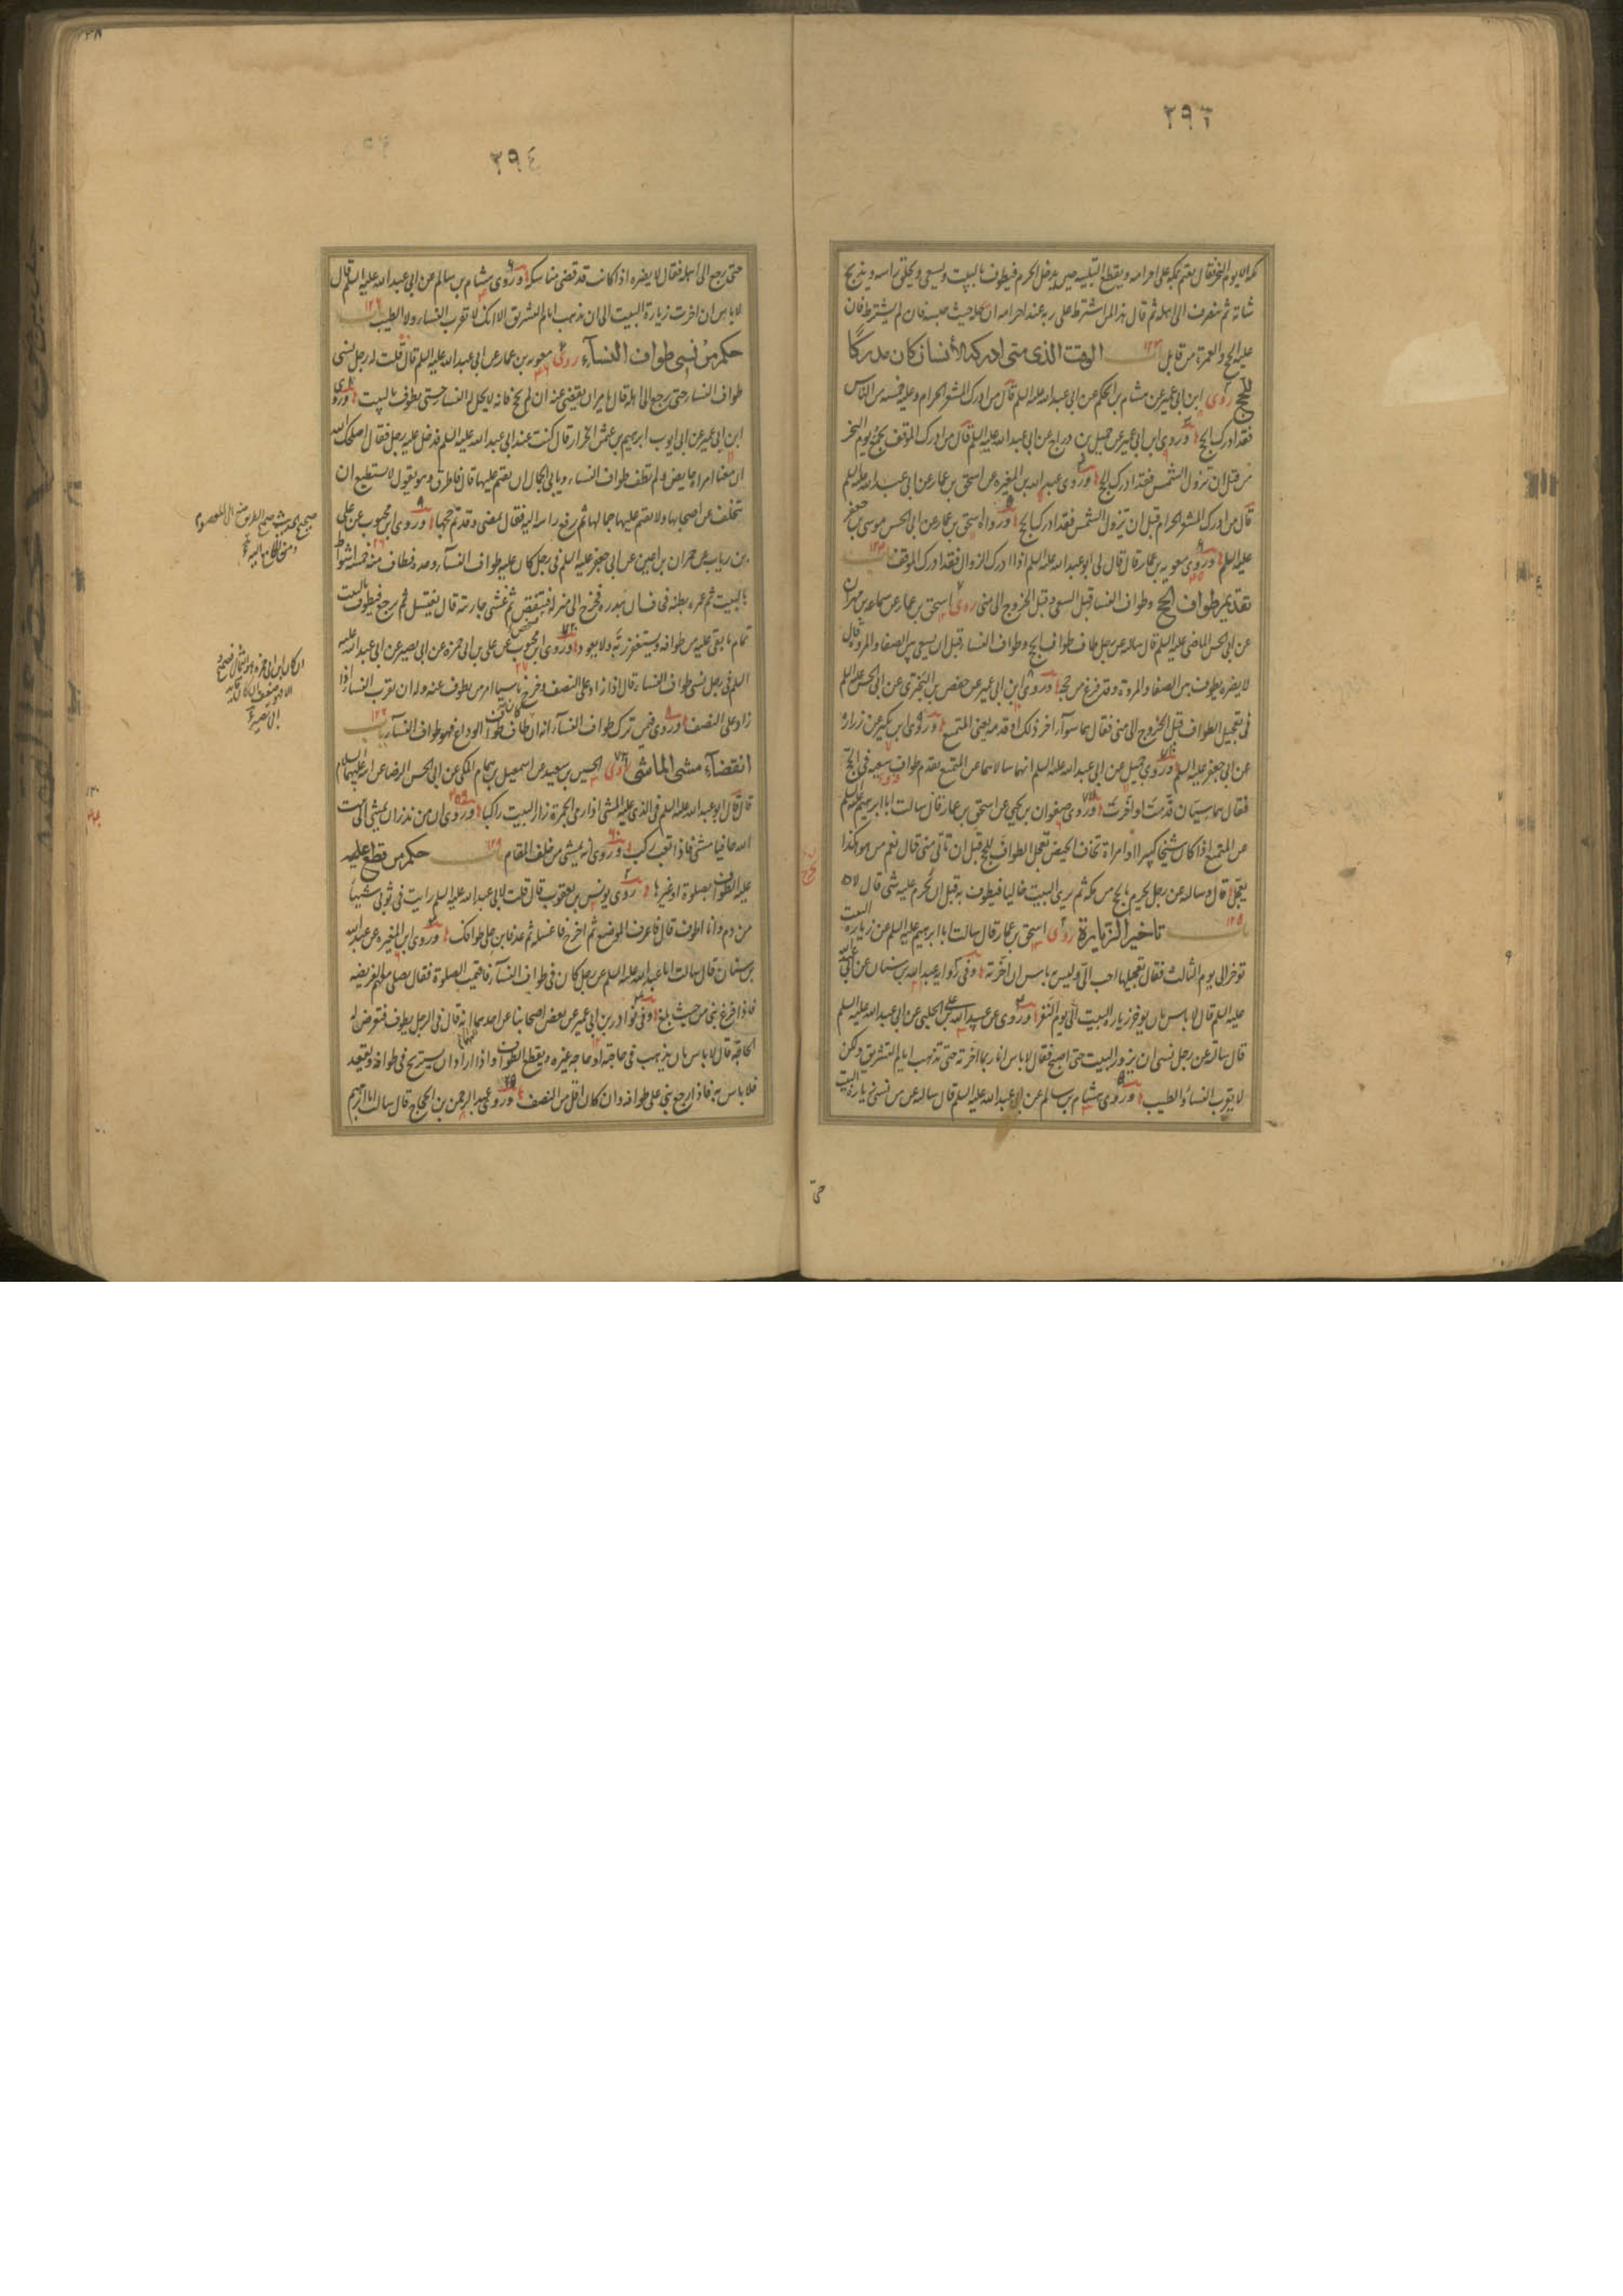 ٢٩٣
مكة الا يوم النحر فقال يقيم بمكة على احرامه ويقطع التلبية حين يدخل الحرم فيطوف بالبيت ويسعى ويحلق راسه ويذبح
شاته ثم ينصرف الى اهله ثم قال هذا لمن اشترط على ربه عند احرامه ان يحله حيث حبسه فان لم يشترط فان
عليه الحج والعمرة من قابل باب ١٢٣ الوقت الذى متى ادركه الأنسان كان مدركا
للحج روى ابن ابى عمير عن هشام بن الحكم عن ابى عبد الله عليه السلم قال من ادرك المشعر الحرام وعليه خمسة من الناس
فقد ادرك الحج وروى ابن ابى عمير عن جميل بن دراج عن ابى عبد الله عليه السلم قال من ادرك الموقف بجمع يوم النحر
من قبل ان تزول الشمس فقد ادرك الحج وروى عبد الله بن المغيرة عن اسحق بن عمار عن ابى عبد الله عليه السلم
قال من ادرك المشعر الحرام قبل ان تزول الشمس فقد ادرك الحج ورواه اسحق بن عمار عن ابى الحسن موسى بن جعفر
عليه السلم وروى معوية بن عمار قال قال لى ابو عبد الله عليه السلم اذا ادرك الزوال فقد ادرك الموقف باب
تقديم طواف الحج وطواف النساء قبل السعى وقبل الخروج الى منى روى اسحق بن عمار عن سماعة بن مهران
عن ابى الحسن الماضى عليه السلم قال سالته عن رجل طاف طواف الحج وطواف النساء قبل ان يسعى بين الصفا والمروة قال
لا يضره يطوف بين الصفا والمروة وقد فرغ من حجه وروى ابن ابى عمير عن حفص بن البخترى عن ابى الحسن عليه السلم
فى تعجيل الطواف قبل الخروج الى منى فقال هما سواء اخر ذلك او قدمه يعنى المتمتع وروى ابن بكير عن زرارة
عن ابى جعفر عليه السلم وروى جميل عن ابى عبد الله عليه السلم انهما سالاهما عن المتمتع يقدم طوافه وسعيه فى الحج
فقال هما سيان قدمت او اخرت وروى صفوان بن يحيى عن اسحق بن عمار قال سالت ابا ابرهيم عليه السلم
عن المتمتع اذا كان شيخا كبيرا او امراة تخاف الحيض تعجل الطواف للحج قبل ان تاتى منى قال نعم من هو هكذا
يعجل قال وساله عن رجل يحرم بالحج من مكة ثم يرى البيت خاليا فيطوف به قبل ان يخرج عليه شى قال لا
باب ١٢٥ تاخير الزيارة روى اسحق بن عمار قال سالت ابا ابرهيم عليه السلم عن زيارة البيت
تؤخر الى يوم الثالث فقال تعجيلها احب الى وليس به باس ان اخرته وفى رواية عبد الله بن سنان عن ابى عبد الله
عليه السلم قال لا باس بان يؤخر زيارة البيت الى يوم النفر وروى عن عبيد الله بن على الحلبى عن ابى عبد الله عليه السلم
قال سالته عن رجل نسى ان يزور البيت حتى اصبح فقال لا باس انا ربما اخرته حتى تذهب ايام التشريق ولكن
لا يقرب النساء والطيب وروى هشام بن سالم عن ابى عبد الله عليه السلم قال ساله عمن نسى زيارة البيت
حتى
٢٩٤
حتى يرجع الى اهله فقال لا يضره اذا كانت قد قضى مناسكه وروى هشام بن سالم عن ابى عبد الله عليه السلم قال
لا باس ان اخرت زيارة البيت الى ان يذهب ايام التشريق الا انك لا تقرب النساء ولا الطيب باب ١٢٦
حكم من نسى طواف النساء روى معوية بن عمار عن ابى عبد الله عليه السلم قال قلت له رجل نسى
طواف النساء حتى يرجع الى اهله قال يامر ان يقضى عنه ان لم يحج فانه لا يحل له النساء حتى يطوف بالبيت وروى
ابن ابى عمير عن ابى ايوب ابرهيم بن عثمن الخزاز قال كنت عند ابى عبد الله عليه السلم فدخل عليه رجل فقال اصلحك الله
ان معنا امراة حايض ولم تطف طواف النساء ويابى الجمال ان يقيم عليها قال فاطرق وهو يقول لا تستطيع ان
تتخلف عن اصحابها ولا يقيم عليها جمالها ثم رفع راسه اليه فقال تمضى وقد تم حجها وروى ابن محبوب عن على
بن رياب عن حمران بن اعين عن ابى جعفر عليه السلم فى رجل كان عليه طواف النساء وحده فطاف منه خمسة اشواط
بالبيت ثم غمزه بطنه فخاف ان يبدره فخرج الى منزله فنقض ثم غشى جاريته قال يغتسل ثم يرجع فيطوف بالبيت
تمام ما بقى عليه من طوافه ويستغفر ربه ولا يعود وروى ابن محبوب عن على بن ابى حمزة عن ابى بصير عن ابى عبد الله عليه
السلم فى رجل نسى طواف النساء قال اذا زاد على النصف وخرج ناسيا امر من يطوف عنه وله ان يقرب النساء اذا
زاد على النصف وروى فيمن ترك طواف النساء انه ان كان طاف طواف الوداع فهو طواف النساء باب
انقضاء مشى الماشى روى الحسين بن سعيد عن اسمعيل بن همام المكى عن ابى الحسن الرضا عن ابيه عليهما السلام
قال قال ابو عبد الله عليه السلم فى الذى عليه المشى اذا رمى الجمرة زار البيت راكبا وروى ان من نذر ان يمشى الى بيت
الله حافيا مشى فاذا تعب ركب وروى انه يمشى من خلف المقام باب حكم من قطع عليه
عليه الطواف بصلوة او غيرها روى يونس بن يعقوب قال قلت لابى عبد الله عليه السلم رايت فى ثوبى شيئا
من دم وانا اطوف قال فاعرف الموضع ثم اخرج فاغسله ثم عد فابن على طوافك وروى ابن المغيرة عن عبد الله
بن سنان قال سالت ابا عبد الله عليه السلم عن رجل كان فى طواف النساء فاقيمت الصلوة فقال يصلى معهم الفريضة
فاذا فرغ بنى من حيث بلغ وفى نوادر بن ابى عمير عن بعض اصحابنا عن احدهما انه قال فى الرجل يطوف فتعرض له
الحاجة قال لا باس بان يذهب فى حاجته او حاجة غيره ويقطع الطواف واذا اراد ان يستريح فى طوافه ويقعد
فلا باس به فاذا رجع بنى على طوافه وان كان اقل من النصف وروى عبد الرحمن بن الحجاج قال سالت ابا ابرهيم